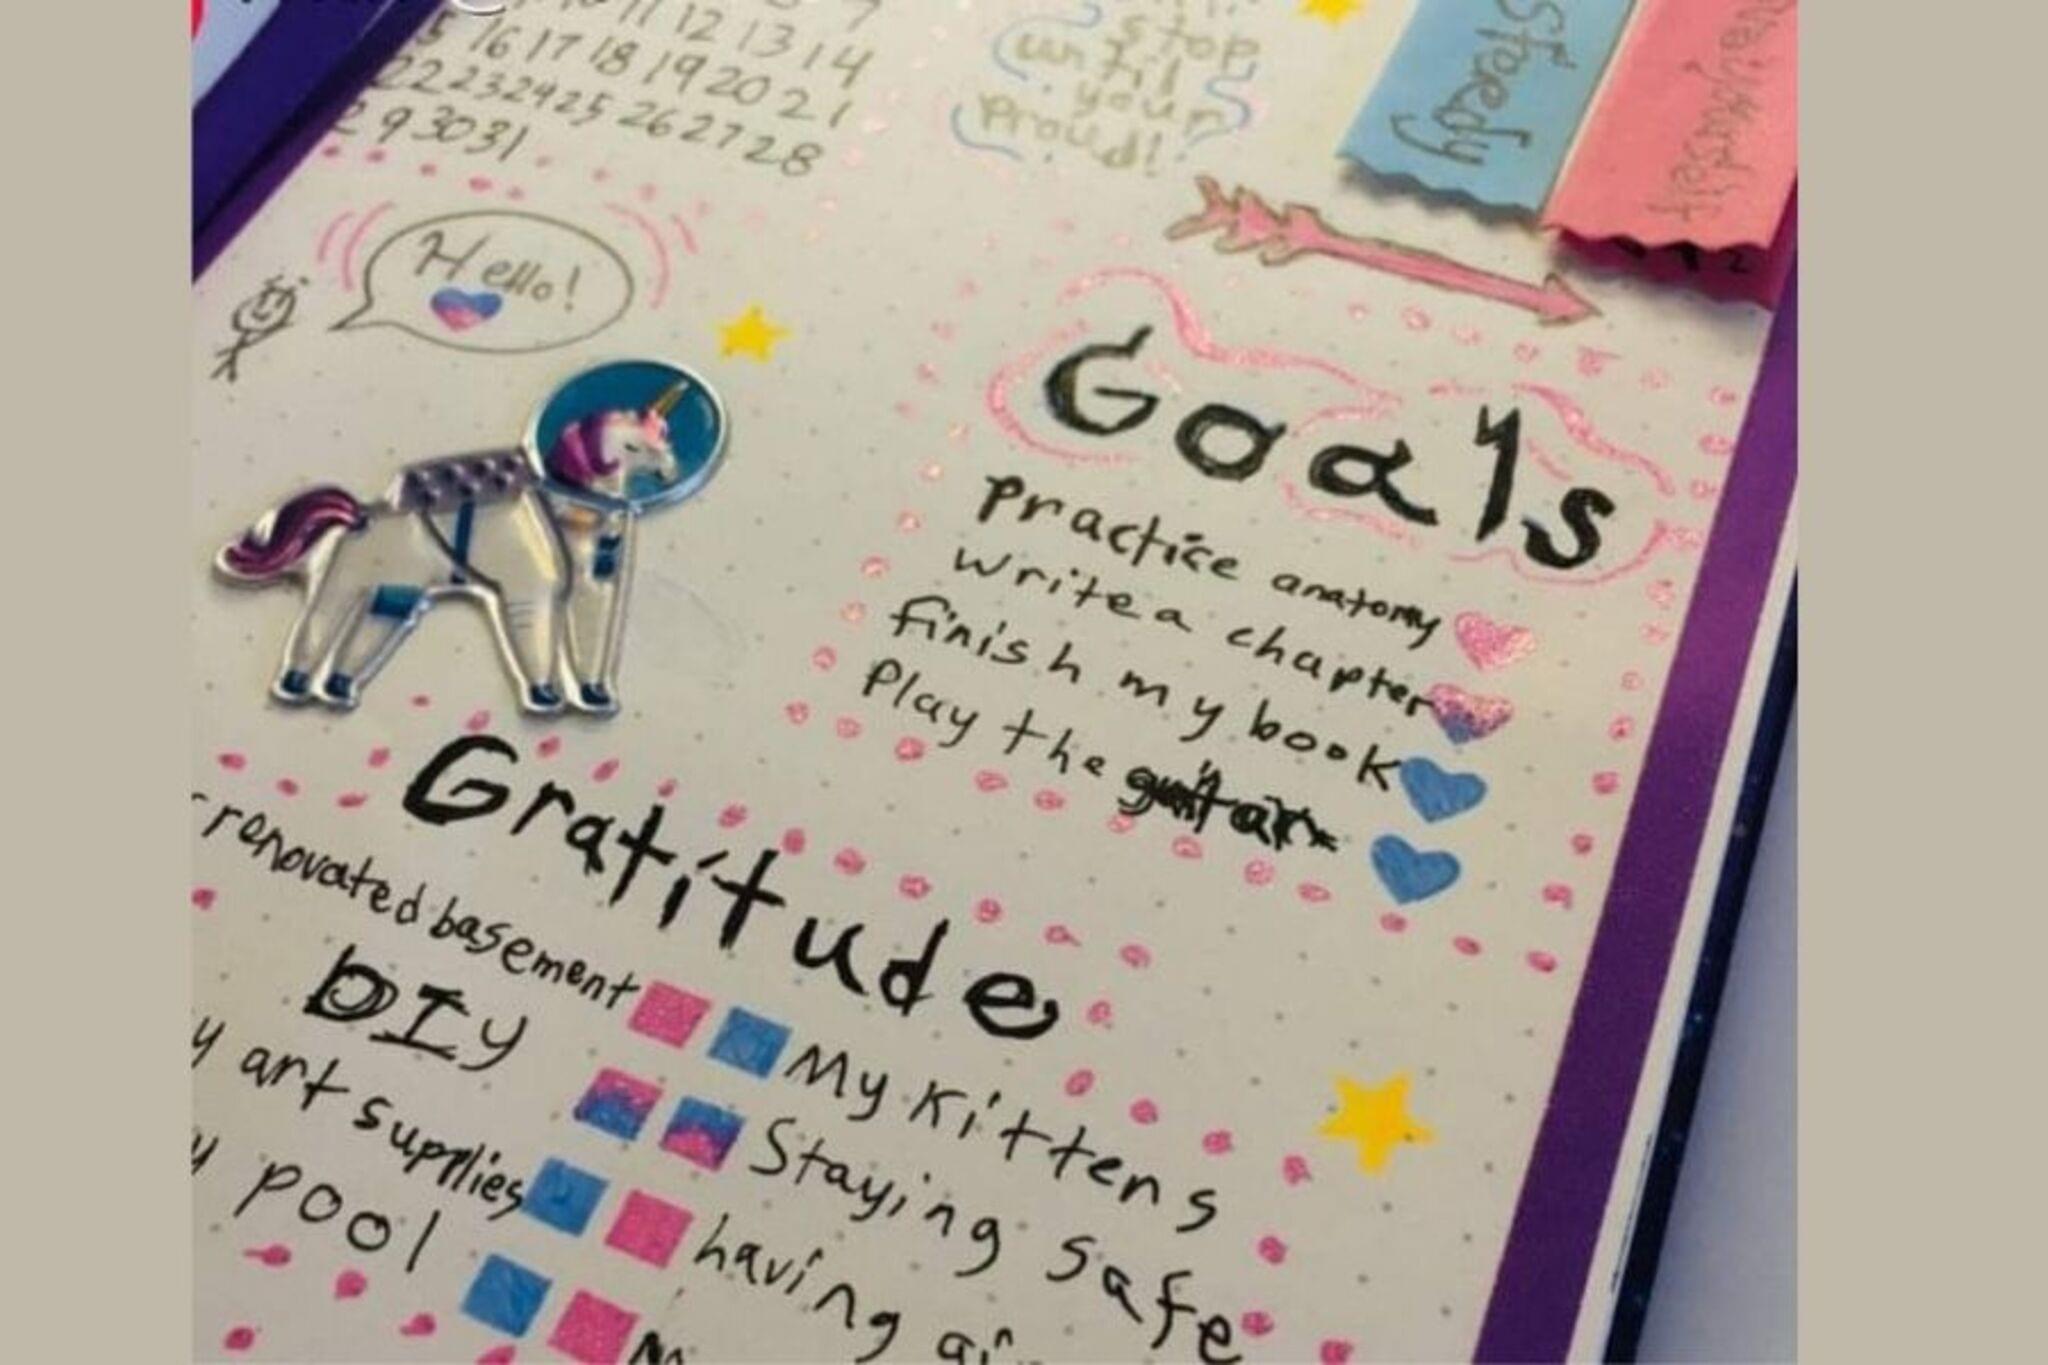 7
11 12 13 14
16 17 18 19 20 21
22 23 24 25 26 27 28
29 30 31
stop
until
your
proud!
Steredy
Hello!
Goals
practice anatomy
write a chapter
finish my book
Play the guitar
Gratitude
renovated basement
My Kittens
DIY
Staying safe
art supplies
having
pool